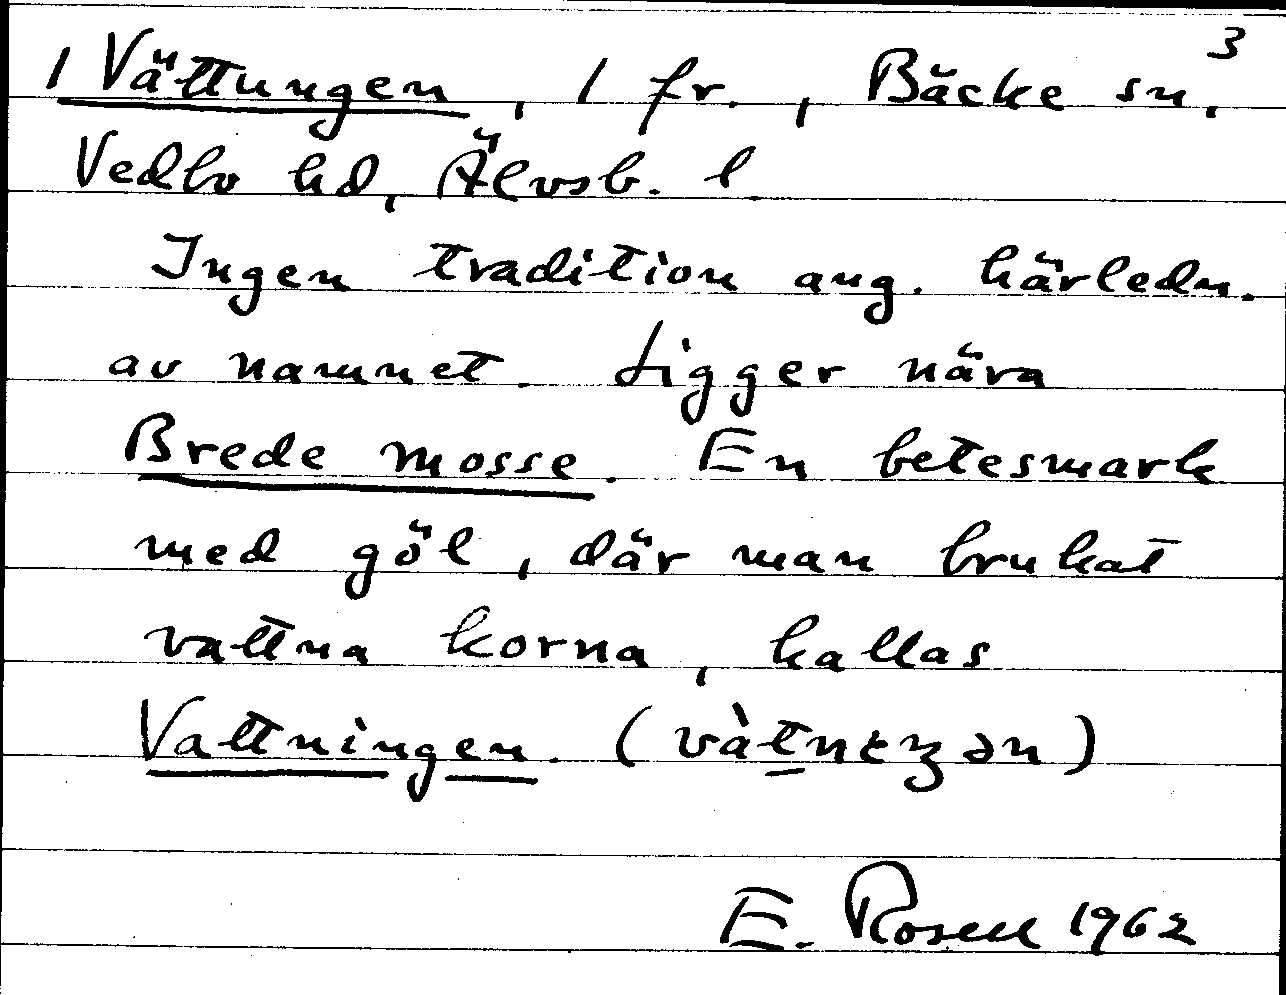 3
1 Vättungen, 1 fr., Bäcke sn,
Vedbo hd, Älvsb. l.
Ingen tradition ang. härledn.
av namnet. Ligger nära
Brede mosse. En betesmark
med göl, där man brukat
vattna korna, kallas
Vattningen. (vàtnɛȝən)
E. Rosell 1962